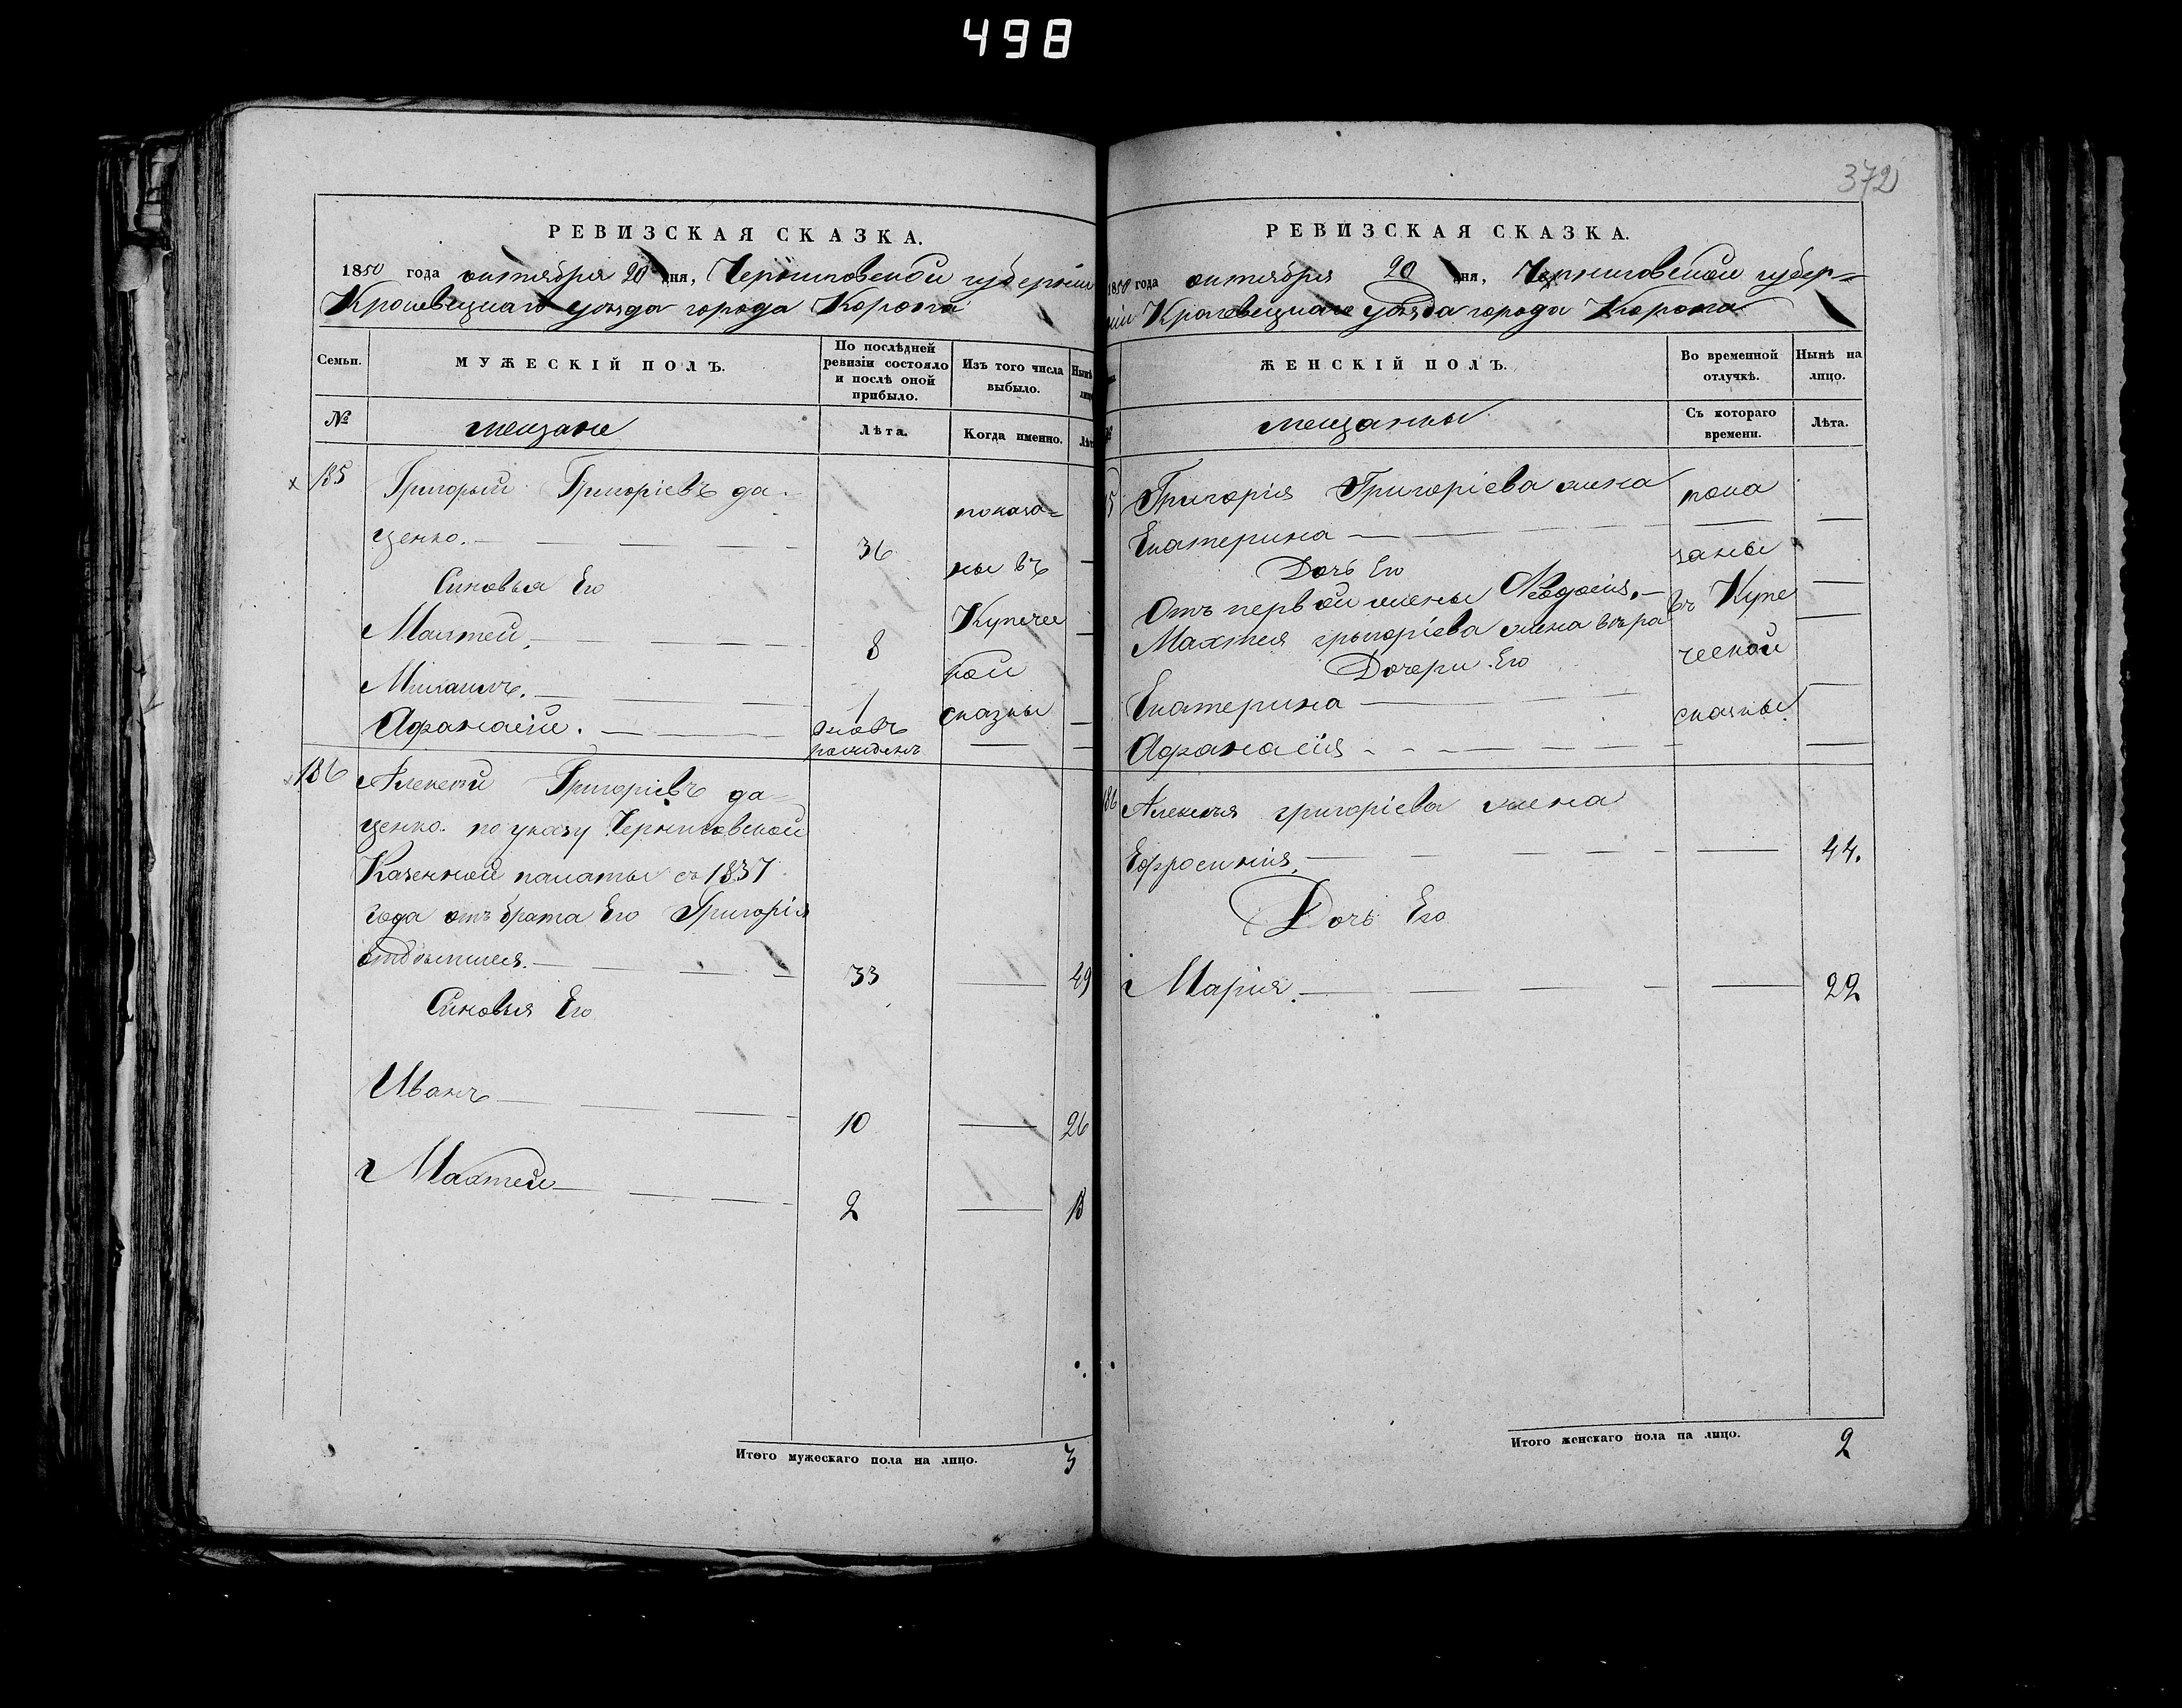 498
372
РЕВИЗСКАЯ СКАЗКА.
1850 года октября 20 дня, Черниговской губернии
Кролевецкаго уѣзда города Коропа
Семьи.
МУЖЕСКІЙ ПОЛЪ.
По послѣдней ревизіи состояло и послѣ оной прибыло.
Изъ того числа выбыло.
Нынѣ
№
мещане
Лѣта.
Когда именно.
Лѣт
185
Григорий Григоріевъ да-
ценко.
36
показа=
ны въ
Купечес
кой
сказкы
Синовья Его
Махтей.
8
Михаилъ.
1
Афанасій.
вновь рожденъ
186
Алексей Григоріевъ да=
ценко. по указу Черниговской
Казенной палаты съ 1837
года отъ брата Его Григорія
отдѣлился.
33
49
Синовья Его
Иванъ
10
26
Махтей
2
18
Итого мужескаго пола на лицо.
3
РЕВИЗСКАЯ СКАЗКА.
1850 года октября 20 дня, Черниговской губер=
ніи Кролевецкаго уѣзда города Коропа
ЖЕНСКІЙ ПОЛЪ.
Во временной отлучкѣ.
Нынѣ на лицо.
мещанкы
Съ котораго времени.
Лѣта.
Григорія Григоріева жена
Екатерина
пока
заны
въ Купе
ческой
сказкы.
Дочь Его
Отъ первой жены Феодосія.
Махтея григоріева жена вѣра
Дочери Его
Екатерина
Афанасія
186
Алексѣя григоріева жена
Ефросинія.
44.
Дочь Его
Марія.
22
Итого женскаго пола на лицо.
2